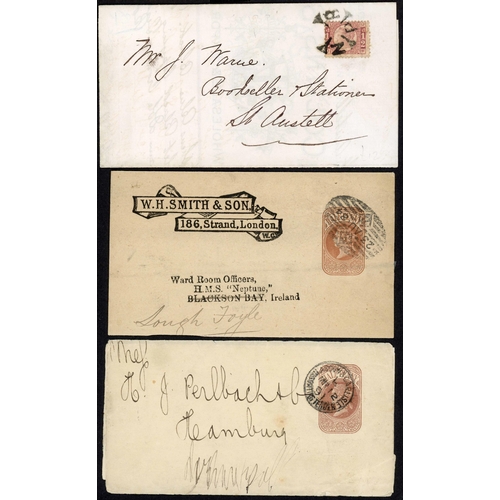 Mr J. Warne.
Bookseller & Stationer
St Austell
W.H. SMITH & SON,
186, Strand, London.
W.C.
Ward Room Officers,
H.M.S. "Neptune,"
BLACKSON BAY, Ireland
Lough Foyle
H. J. Perlbach & Co
Hamburg